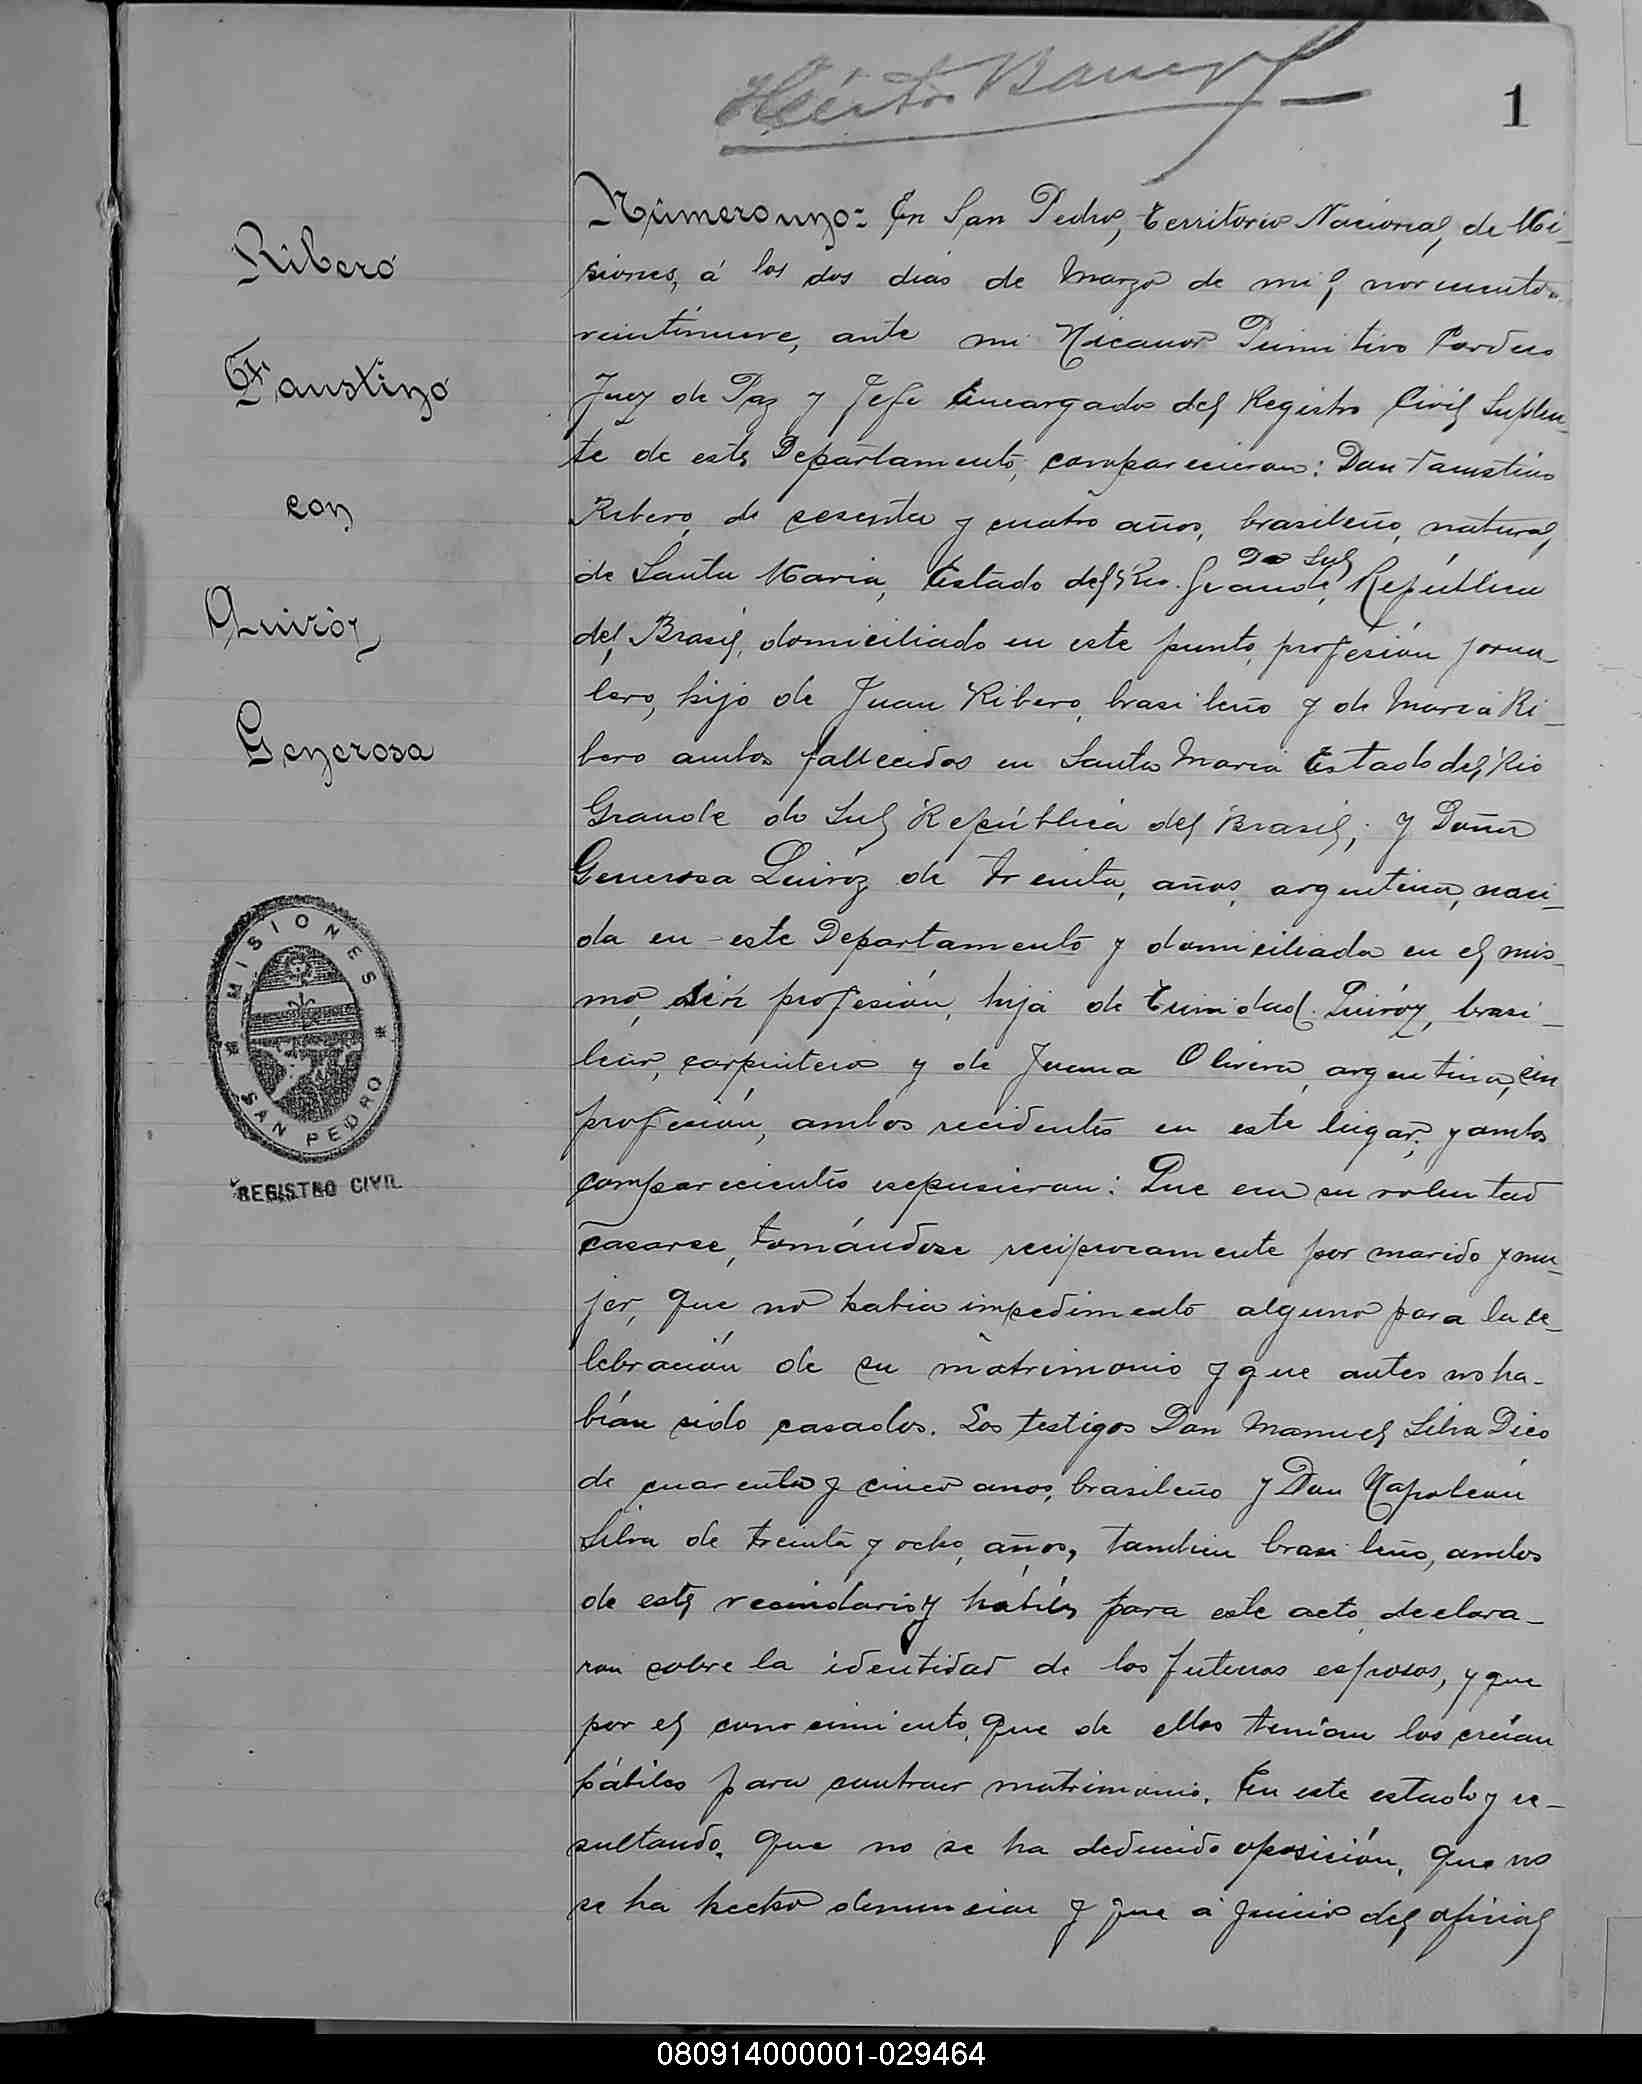 1
Ribero
Faustino
con
Quiróz
Generosa
MISIONES
SAN PEDRO
REGISTRO CIVIL
Número uno: En San Pedro, Territorio Nacional, de Mi-
siones, á los dos dias de Marzo de mil novecientos
veintinueve, ante mi Nicanor Primitivo
Juez de Paz y Jefe Encargado del Registro Civil Suplen-
te de este Departamento, comparecieron: Don Faustino
Ribero, de sesenta y cuatro años, brasileño, natural
de Santa Maria, Estado del Rio Grande, Do Sul República
del Brasil, domiciliado en este punto, profesión jorna-
lero, hijo de Juan Ribero, brasileño y de Maria Ri-
bero ambos fallecidos en Santa Maria Estado del Rio
Grande do Sul República del Brasil; y Doña
Generosa Quiróz de treinta, años, argentina, naci-
da en este Departamento y domiciliada en el mis-
mo, sin profesión, hija de Trinidad Quiróz, brasi-
lero, carpintero y de Juana Olivera, argentina, sin
profesión, ambos recidentes en este lugar, y ambos
comparecientes espusieron: Que era su voluntad
casarse, tomándose reciprocamente por marido y mu-
jer, que no habia impedimento alguno para la ce-
lebración de su matrimonio y que antes no ha-
bían sido casados. Los testigos Don Manuel Silva Dico
de cuarenta y cinco anos, brasileño y Don Napoleón
Silva de treinta y ocho, años, tambien brasileño, ambos
de este vecindario y hábiles para este acto, declara-
ron sobre la identidad de los futuros esposos, y que
por el conocimiento, que de ellos tenían los creían
hábiles para contraer matrimonio. En este estado y re-
sultando, que no se ha deducido oposición, que no
se ha hecho denuncia y que a juicio del oficial
080914000001-029464